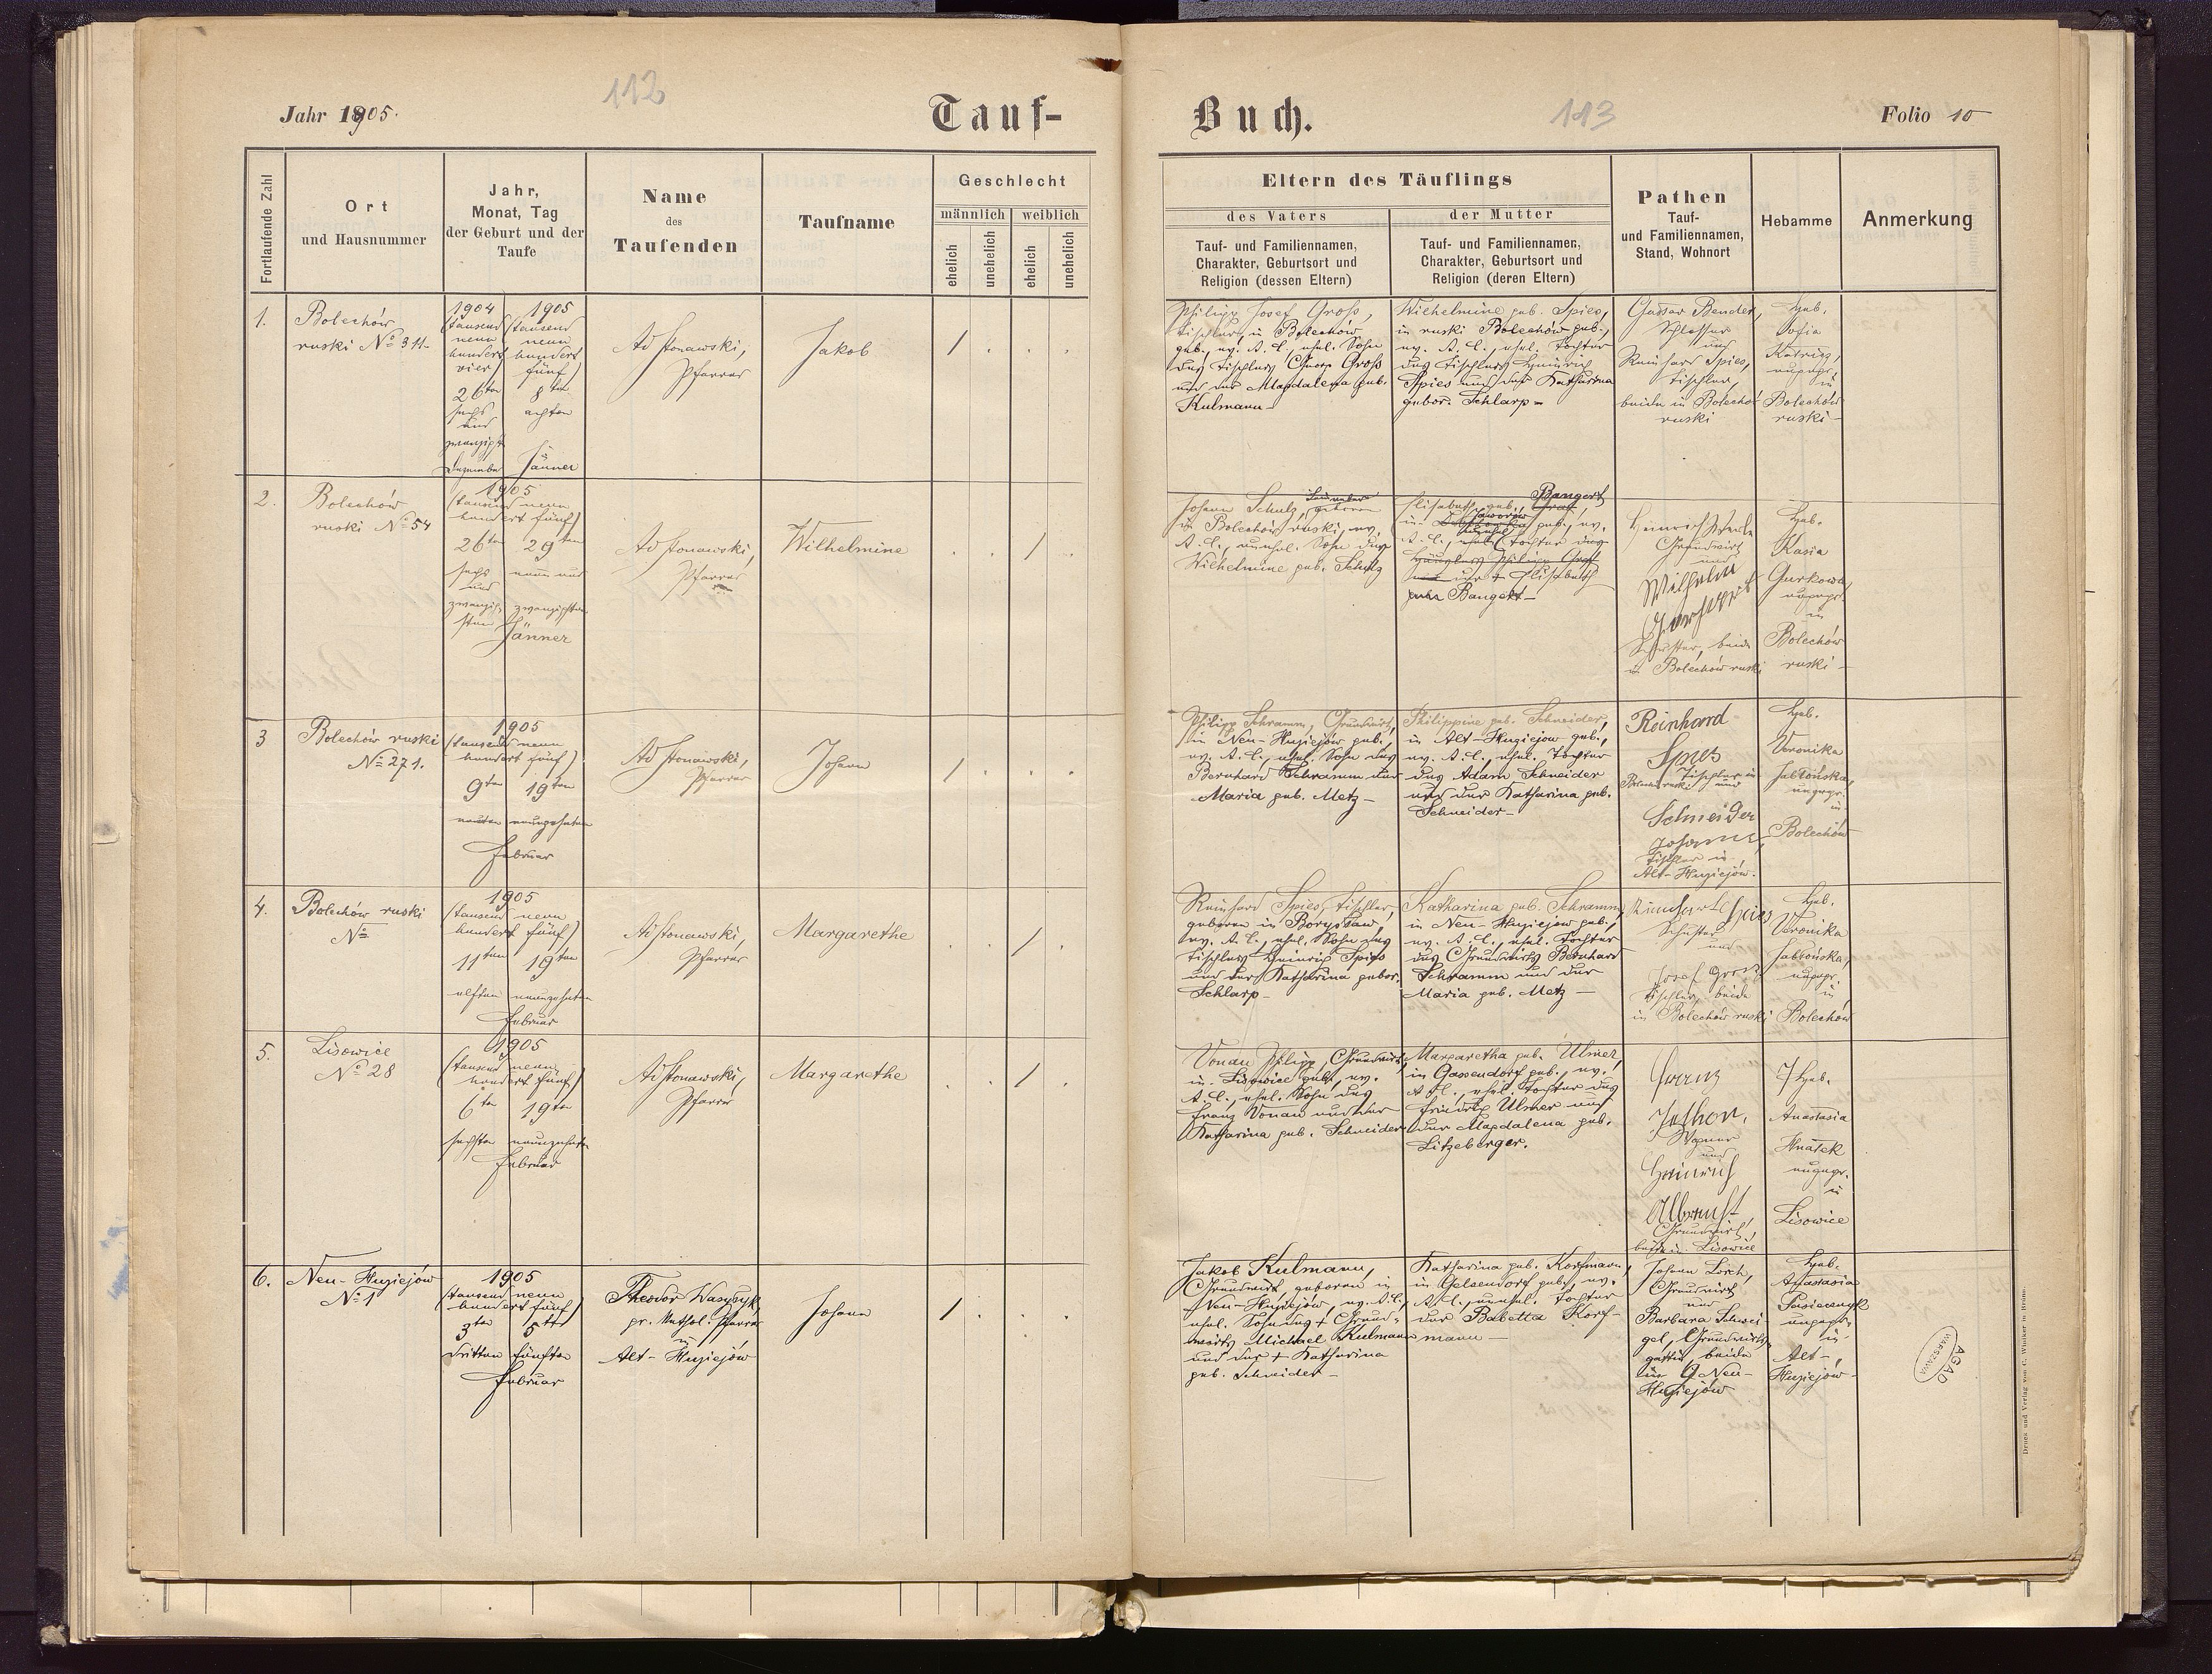 112
Jahr 1905.
Tauf-
Fortlaufende Zahl
Ort
und Hausnummer
Jahr,
Monat, Tag
der Geburt und der
Taufe
Name
des
Taufenden
Taufname
Geschlecht
männlich
weiblich
ehelich
unehelich
ehelich
unehelich
1.
Bolechów
ruski No 311
1904
(tausend
neun
hundert
vier)
26ten
sechs
und
zwanzigst
Dezember
1905
(tausend
neun
hundert
fünf)
8ten
achten
Jänner
Pfarrer
Jakob
2.
Bolechów
ruski No 54
1905
(tausend neun
hundert fünf)
26ten 29ten
sechs neun und
und
zwanzig- zwanzigsten
sten
Jänner
Pfarrer
Wilhelmine
3
Bolechów ruski
No 271.
1905
(tausend neun
hundert fünf)
9ten 19ten
neunten neunzehnten
Februar
Pfarrer
Johann
4.
Bolechów ruski
No
1905
(tausend neun
hundert fünf)
11ten 19ten
elften neunzehnten
Februar
Pfarrer
Margarethe
5.
Lisowice
No 28
1905
(tausend neun
hundert fünf)
6ten 19ten
sechsten neunzehnten
Februar
Pfarrer
Margarethe
6.
Neu-Hujziejów
No 1
1905
(tausend neun
hundert fünf)
3ten 5ten
dritten fünften
Februar
Theodor
gr. kathol. Pfarrer
in
Alt-Hujziejów
Johann
Buch.
113
Folio 10
Eltern des Täuflings
des Vaters
der Mutter
Tauf- und Familiennamen,
Charakter, Geburtsort und
Religion (dessen Eltern)
Tauf- und Familiennamen,
Charakter, Geburtsort und
Religion (deren Eltern)
Pathen
Tauf-
und Familiennamen,
Stand, Wohnort
Hebamme
Anmerkung
Philipp Josef Gross,
Tischler, in Bolechów
geb., ev. A. C., ehel. Sohn
des Tischlers Georg Gross
und der Magdalena geb.
Kulmann
Wilhelmine geb. Spies,
in ruski Bolechów geb.,
ev. A. C., ehel. Tochter
des Tischlers Heinrich
Spies und der Katharina
gebor. Schlarp
Gustav Bender,
Schlosser
und
Reinhard Spies,
Tischler,
beide in Bolechów
ruski
Heb.
Sofia
ungepr.
in
Bolechów
ruski
Johann Schulz, geboren
in Bolechów ruski, ev.
A. C., unehel. Sohn der
Wilhelmine geb. Schulz
Elisabeth geb. Bangert
in Jaworów geb., ev.
A. C., Tochter des
Philipp Graf
und der + Elisabeth
geb. Bangert
Heinrich
Grundwirt
und
Wilhelm
Schuster, beide
in Bolechów ruski
Heb.
Kasia
Gurkowa,
ungepr.
in
Bolechów
ruski
Philipp Schramm, Grundwirt,
in Neu-Hujziejów geb.,
ev. A. C., ehel. Sohn des
Bernhard Schramm und
Maria geb. Metz
Philippine geb. Schneider,
in Alt-Hujziejów geb.,
ev. A. C., ehel. Tochter
des Adam Schneider
und der Katharina geb.
Schneider
Reinhard
Spies
Tischler in
und
Schneider
Johann,
Tischler in
Alt-Hujziejów.
Heb.
Veronika
Jabłońska,
ungepr.
in
Bolechów
Reinhard Spies, Tischler,
geboren in Borysław,
ev. A. C., ehel. Sohn des
Tischlers Heinrich Spies
und der Katharina gebor.
Schlarp
Katharina geb. Schramm,
in Neu-Hujziejów geb.,
ev. A. C., ehel. Tochter
des Grundwirts Bernhard
Schramm und der
Maria geb. Metz
Spies
Schuster
und
Josef Gross
Tischler, beide
in Bolechów ruski
Heb.
Veronika
Jabłońska,
ungepr.
in
Bolechów
Vonau Philipp, Grundwirt,
in Lisowice geb., ev.
A. C., ehel. Sohn des
Franz Vonau und der
Katharina geb. Schneider
Margaretha geb. Ulmer,
in Gassendorf geb., ev.
A. C., ehel. Tochter des
Friedrich Ulmer und
der Magdalena geb.
Litzeberger.
Franz
Wagner
und
Heinrich
Albrecht,
Grundwirt,
beide in Lisowice
Heb.
Anastasia
Hnatek
ungepr.
in
Lisowice
Jakob Kulmann,
Grundwirt, geboren in
Neu-Hujziejów, ev. A. C.,
ehel. Sohn des + Grund-
wirts Michael Kulmann
und der + Katharina
geb. Schneider
Katharina geb. Korfmann,
in Gelsendorf geb., ev.
A. C., unehel. Tochter
der Babetta Korf-
mann
Johann Lorch,
Grundwirt
und
Barbara Schwei-
gel, Grundwirts-
gattin, beide
in Neu-
Hujziejów
Heb.
Anastasia
ungepr.
in
Alt-
Hujziejów
AGAD
WARSZAWA
Druck und Verlag von C. Winiker in Brünn.